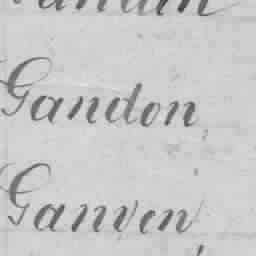 Gandon
Ganven